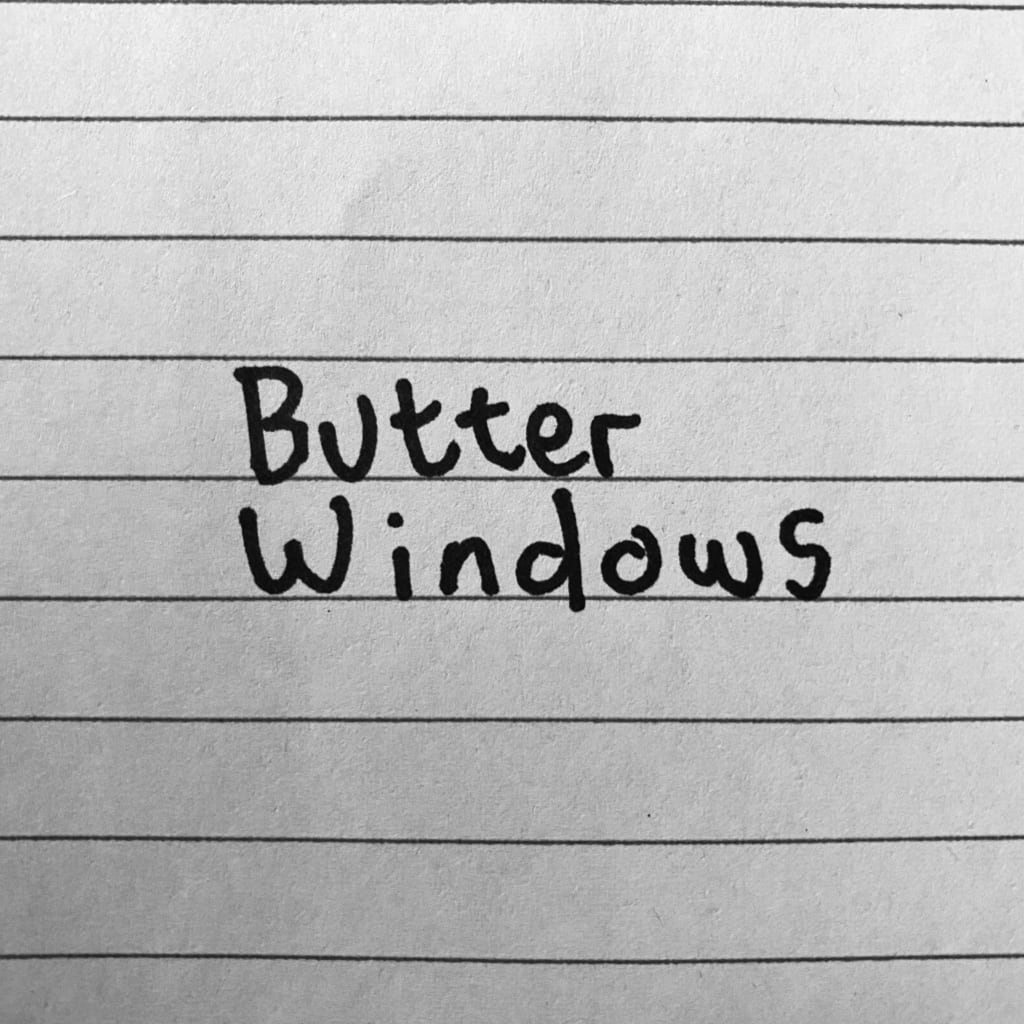 Butter
Windows